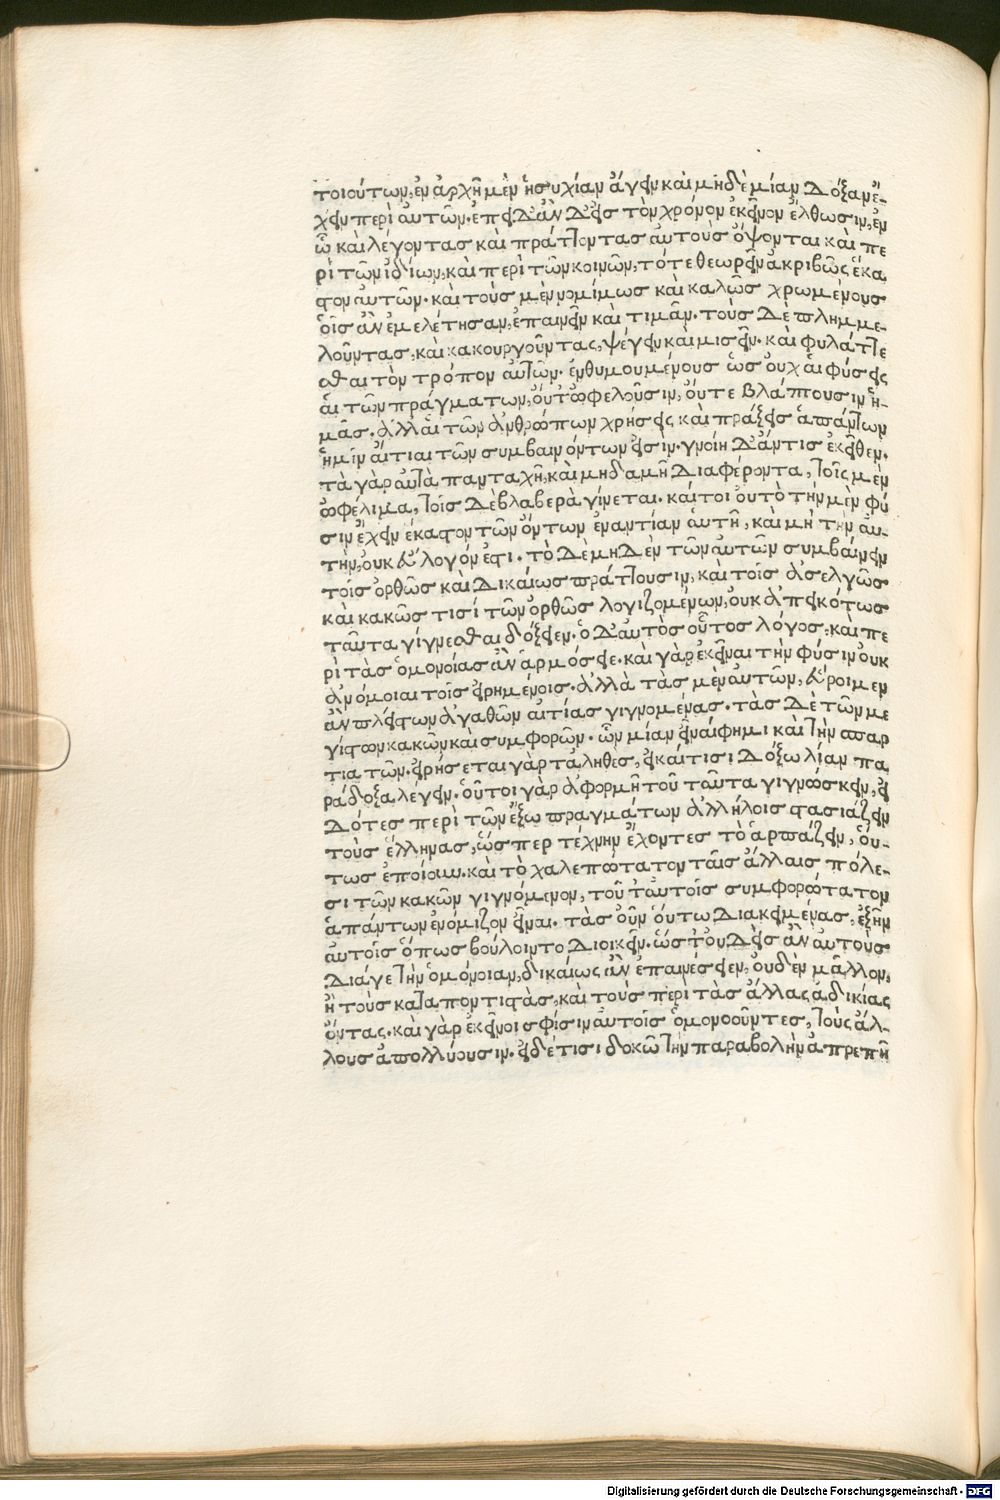 τοιούτων, ἐν ἀρχῇ μὲν ἡσυχίαν ἄγειν καὶ μηδὲ μίαν δόξαν ἔ-
χειν περὶ αὐτῶν. ἐπειδὰν δ' εἰς τὸν χρόνον ἐκεῖνον ἔλθωσιν, ἐν
ᾧ καὶ λέγοντας καὶ πράττοντας αὐτοὺς ὄψονται καὶ πε
ρὶ τῶν ἰδίων, καὶ περὶ τῶν κοινῶν, τότε θεωρεῖν ἀκριβῶς ἕκα
στον αὐτῶν. καὶ τοὺς μὲν νομίμως καὶ καλῶς χρωμένους
οἷς ἂν ἐμελέτησαν, ἐπαινεῖν καὶ τιμᾶν. τοὺς δὲ πλημμε-
λοῦντας, καὶ κακουργοῦντας, ψέγειν καὶ μισεῖν. καὶ φυλάττε
σθαι τὸν τρόπον αὐτῶν. ἐνθυμουμένους ὡς οὐχ αἱ φύσεις
αἱ τῶν πραγμάτων, οὔτ' ὠφελοῦσιν, οὔτε βλάπτουσιν ἡ-
μᾶς. ἀλλ' αἱ τῶν ἀνθρώπων χρήσεις καὶ πράξεις ἁπάντων
ἡμῖν αἴτιαι τῶν συμβαινόντων εἰσίν. γνοίη δ' ἄν τις ἐκεῖθεν.
τὰ γὰρ αὐτὰ πανταχῆ, καὶ μηδαμῆ διαφέροντα, τοῖς μὲν
ὠφέλιμα, τοῖς δὲ βλαβερὰ γίνεται. καίτοι οὐ τὸ τὴν μὲν φύ
σιν ἔχειν ἕκαστον τῶν ὄντων ἐναντίαν αὑτῇ, καὶ μὴ τὴν αὐ-
τὴν, οὐκ εὔλογόν ἐστι. τὸ δὲ μηδὲν τῶν αὐτῶν συμβαίνειν
τοῖς ὀρθῶς καὶ δικαίως πράττουσιν, καὶ τοῖς ἀσελγῶς
καὶ κακῶς τισὶ τῶν ὀρθῶς λογιζομένων, οὐκ ἀπεικότως
ταῦτα γίγνεσθαι δόξειεν. ὁ δ' αὐτὸς οὗτος λόγος, καὶ πε
ρὶ τὰς ὁμονοίας ἂν ἁρμόσειε. καὶ γὰρ ἐκεῖναι τὴν φύσιν οὐκ
ἀνόμοιαι τοῖς εἰρημένοις. ἀλλὰ τὰς μὲν αὐτῶν, εὕροιμεν
ἂν πλείστων ἀγαθῶν αἰτίας γιγνομένας. τὰς δὲ τῶν με
γίστων κακῶν καὶ συμφορῶν. ὧν μίαν εἶναί φημι καὶ τὴν σπαρ
τιατῶν. εἰρήσεται γὰρ τἀληθὲς, εἰ καί τισι δόξω λίαν πα
ράδοξα λέγειν. οὗτοι γὰρ ἀφορμῇ τοῦ ταῦτα γιγνώσκειν, εἰ
δότες περὶ τῶν ἔξω πραγμάτων ἀλλήλοις στασιάζειν
τοὺς ἕλληνας, ὥσπερ τέχνην ἔχοντες τὸ ἁρπάζειν, οὕ-
τως ἐποίουν. καὶ τὸ χαλεπώτατον ταῖς ἄλλαις πόλε-
σι τῶν κακῶν γιγνόμενον, τοῦθ' αὑτοῖς συμφορώτατον
ἁπάντων ἐνόμιζον εἶναι. τὰς οὖν οὕτω διακειμένας, ἐξῆν
αὐτοῖς ὅπως βούλοιντο διοικεῖν. ὥστ' οὐδεὶς ἂν αὐτοὺς
διάγε τὴν ὁμόνοιαν, δικαίως ἂν ἐπαινέσειεν, οὐδὲν μᾶλλον,
ἢ τοὺς καταποντιστὰς, καὶ τοὺς περὶ τὰς ἄλλας ἀδικίας
ὄντας. καὶ γὰρ ἐκεῖνοι σφίσιν αὐτοῖς ὁμονοοῦντες, τοὺς ἄλ-
λους ἀπολλύουσιν. εἰ δέ τισι δοκῶ τὴν παραβολὴν ἀπρεπῆ
Digitalisierung gefördert durch die Deutsche Forschungsgemeinschaft - DFG